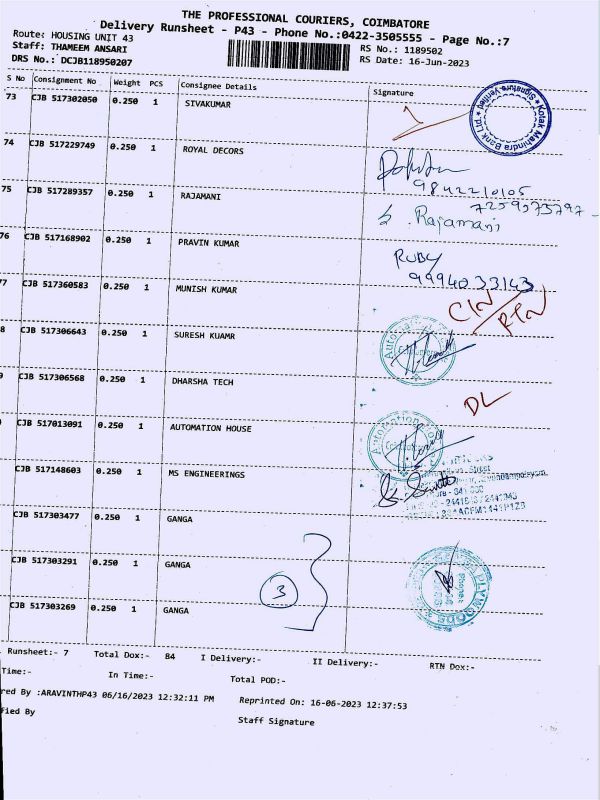 THE PROFESSIONAL COURIERS, COIMBATORE
Delivery Runsheet - P43 - Phone No.:0422-3505555 - Page No.:7
Route: HOUSING UNIT 43
Staff: THAMEEM ANSARI RS No.: 1189502
DRS No.: DCJB118950207 RS Date: 16-Jun-2023
S No Consignment No Weight PCS Consignee Details Signature
73 CJB 517302050 0.250 1 SIVAKUMAR
Kotak Mahindra Bank Ltd. Signature Verified
74 CJB 517229749 0.250 1 ROYAL DECORS
9842210105
75 CJB 517289357 0.250 1 RAJAMANI
7259375797-
S. Rajamani
76 CJB 517168902 0.250 1 PRAVIN KUMAR
RUBY
9994033143
77 CJB 517360583 0.250 1 MUNISH KUMAR
CIN/RTN
8 CJB 517306643 0.250 1 SURESH KUAMR
9 CJB 517306568 0.250 1 DHARSHA TECH
DL
CJB 517013091 0.250 1 AUTOMATION HOUSE
Automation
CJB 517148603 0.250 1 MS ENGINEERINGS
Street
CJB 517303477 0.250 1 GANGA
CJB 517303291 0.250 1 GANGA
3
PLYWOODS
CJB 517303269 0.250 1 GANGA
Runsheet:- 7 Total Dox:- 84 I Delivery:- II Delivery:- RTN Dox:-
Time:- In Time:- Total POD:-
red By :ARAVINTHP43 06/16/2023 12:32:11 PM Reprinted On: 16-06-2023 12:37:53
fied By Staff Signature